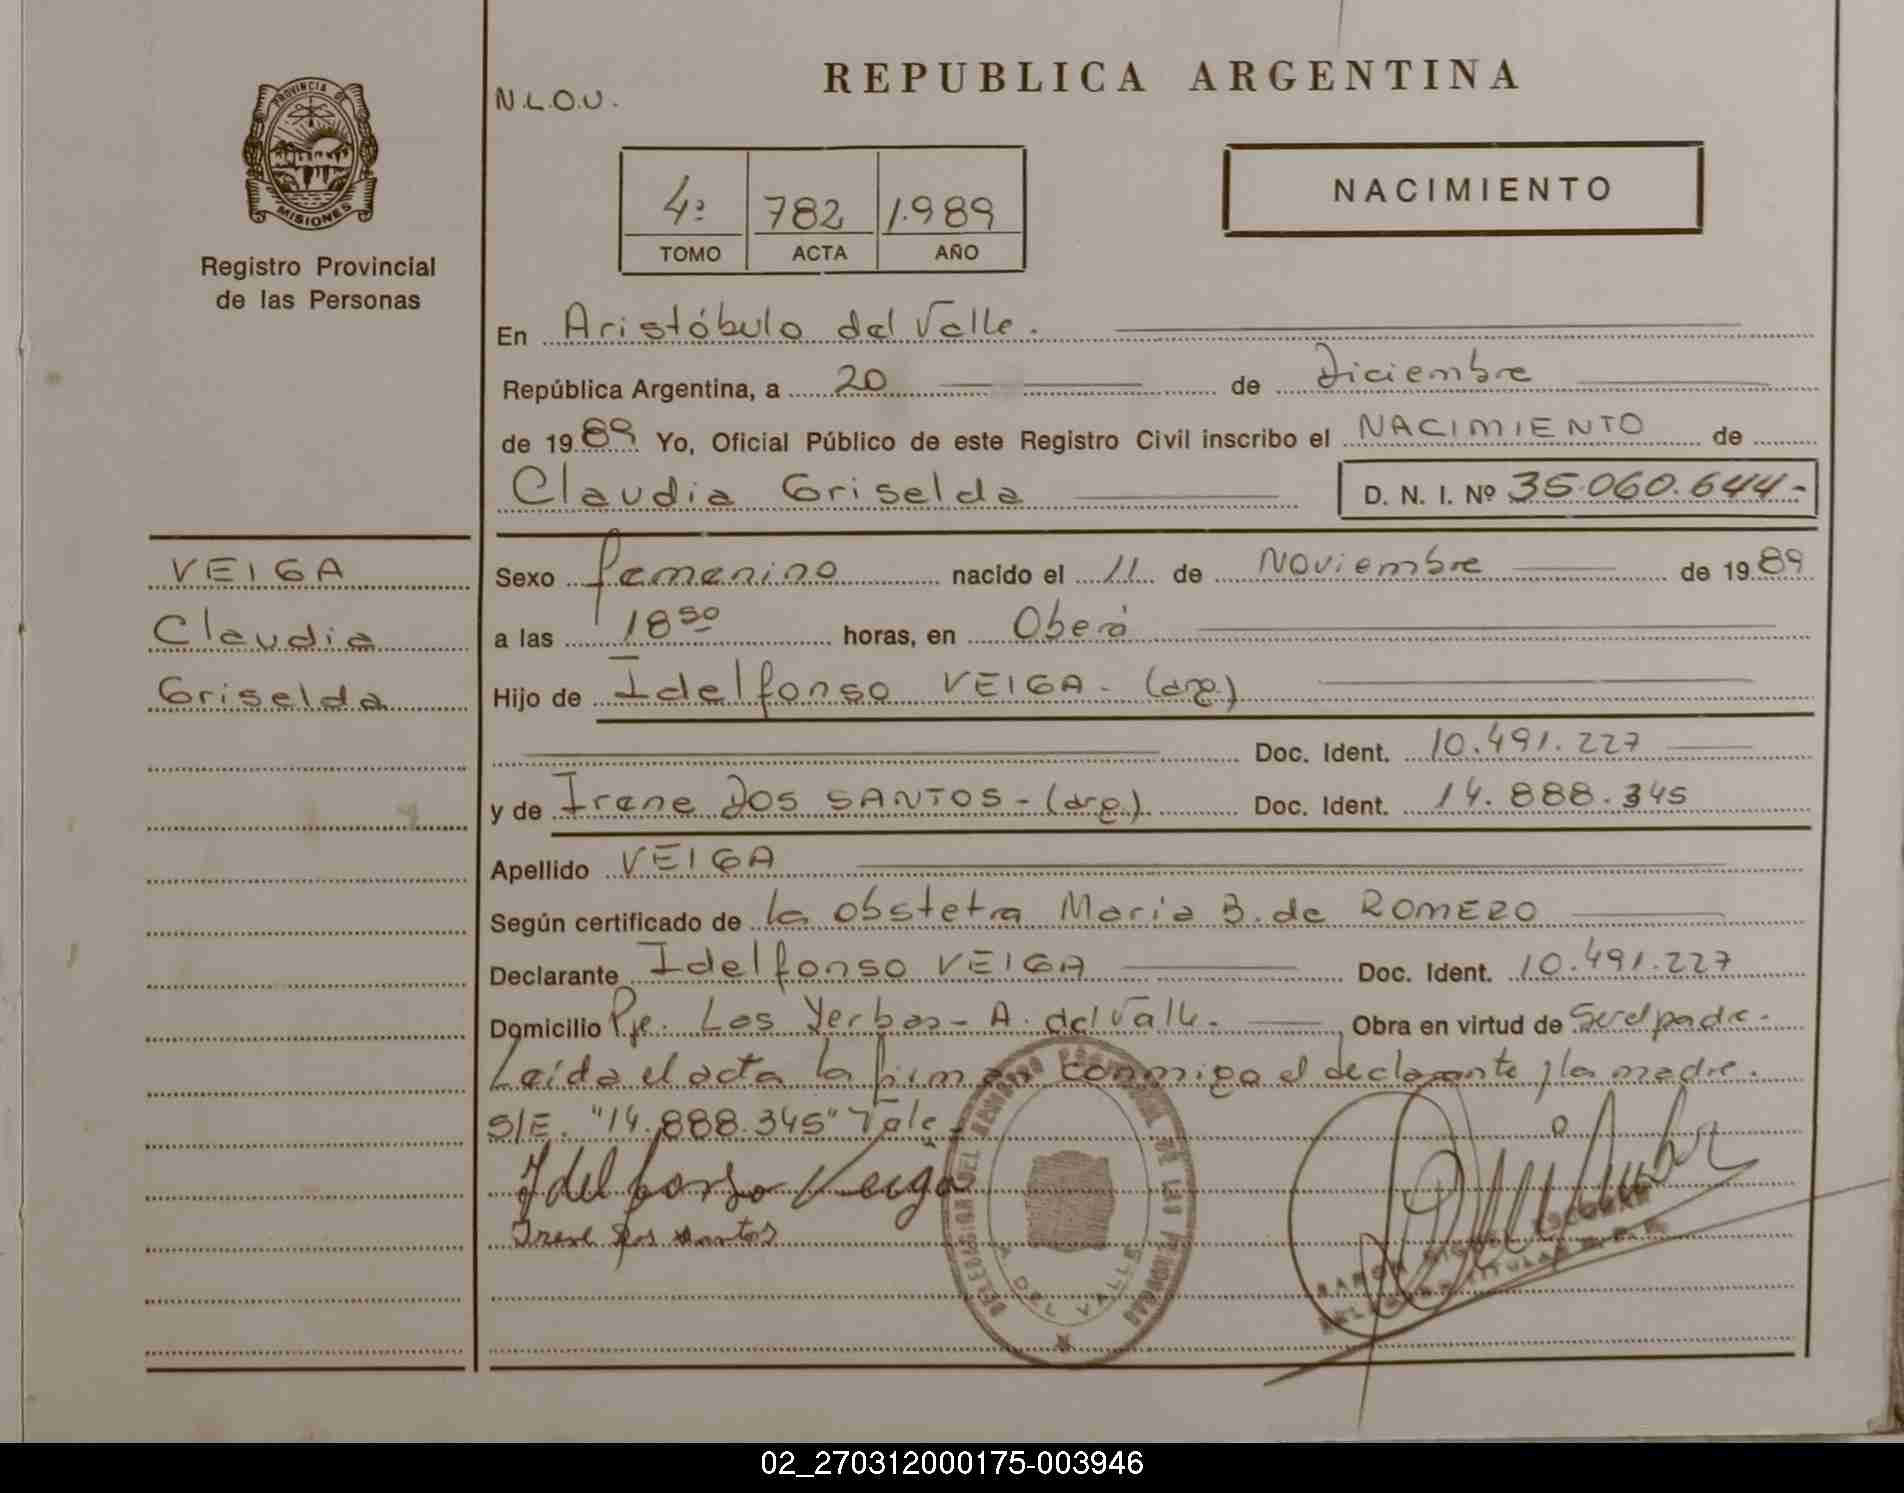 PROVINCIA DE
MISIONES
Registro Provincial
de las Personas
VEIGA
Claudia
Griselda
N.L.O.U.
REPUBLICA ARGENTINA
4º 782 1.989
TOMO ACTA AÑO
NACIMIENTO
En Aristóbulo del Valle.
República Argentina, a 20 de Diciembre
de 1989 Yo, Oficial Público de este Registro Civil inscribo el NACIMIENTO de
Claudia Griselda D. N. I. Nº 35.060.644-
Sexo femenino nacido el 11 de Noviembre de 1989
a las 18 50 horas, en Oberá
Hijo de Idelfonso VEIGA - (arg.)
Doc. Ident. 10.491.227
y de Irene DOS SANTOS - (arg.) Doc. Ident. 14.888.345
Apellido VEIGA
Según certificado de la obstetra María B. de ROMERO
Declarante Idelfonso VEIGA Doc. Ident. 10.491.227
Domicilio Pje. Las Yerbas - A. del Valle. Obra en virtud de Ser el padre.
Leída el acta la firman conmigo el declarante y la madre.
S/E. "14.888.345" Vale.
Idelfonso Veiga
Irene dos santos
DELEGACION DEL REGISTRO PROVINCIAL DE LAS PERSONAS
A. DEL VALLE
RAMON MIGUEL ESCOBAR
02_270312000175-003946